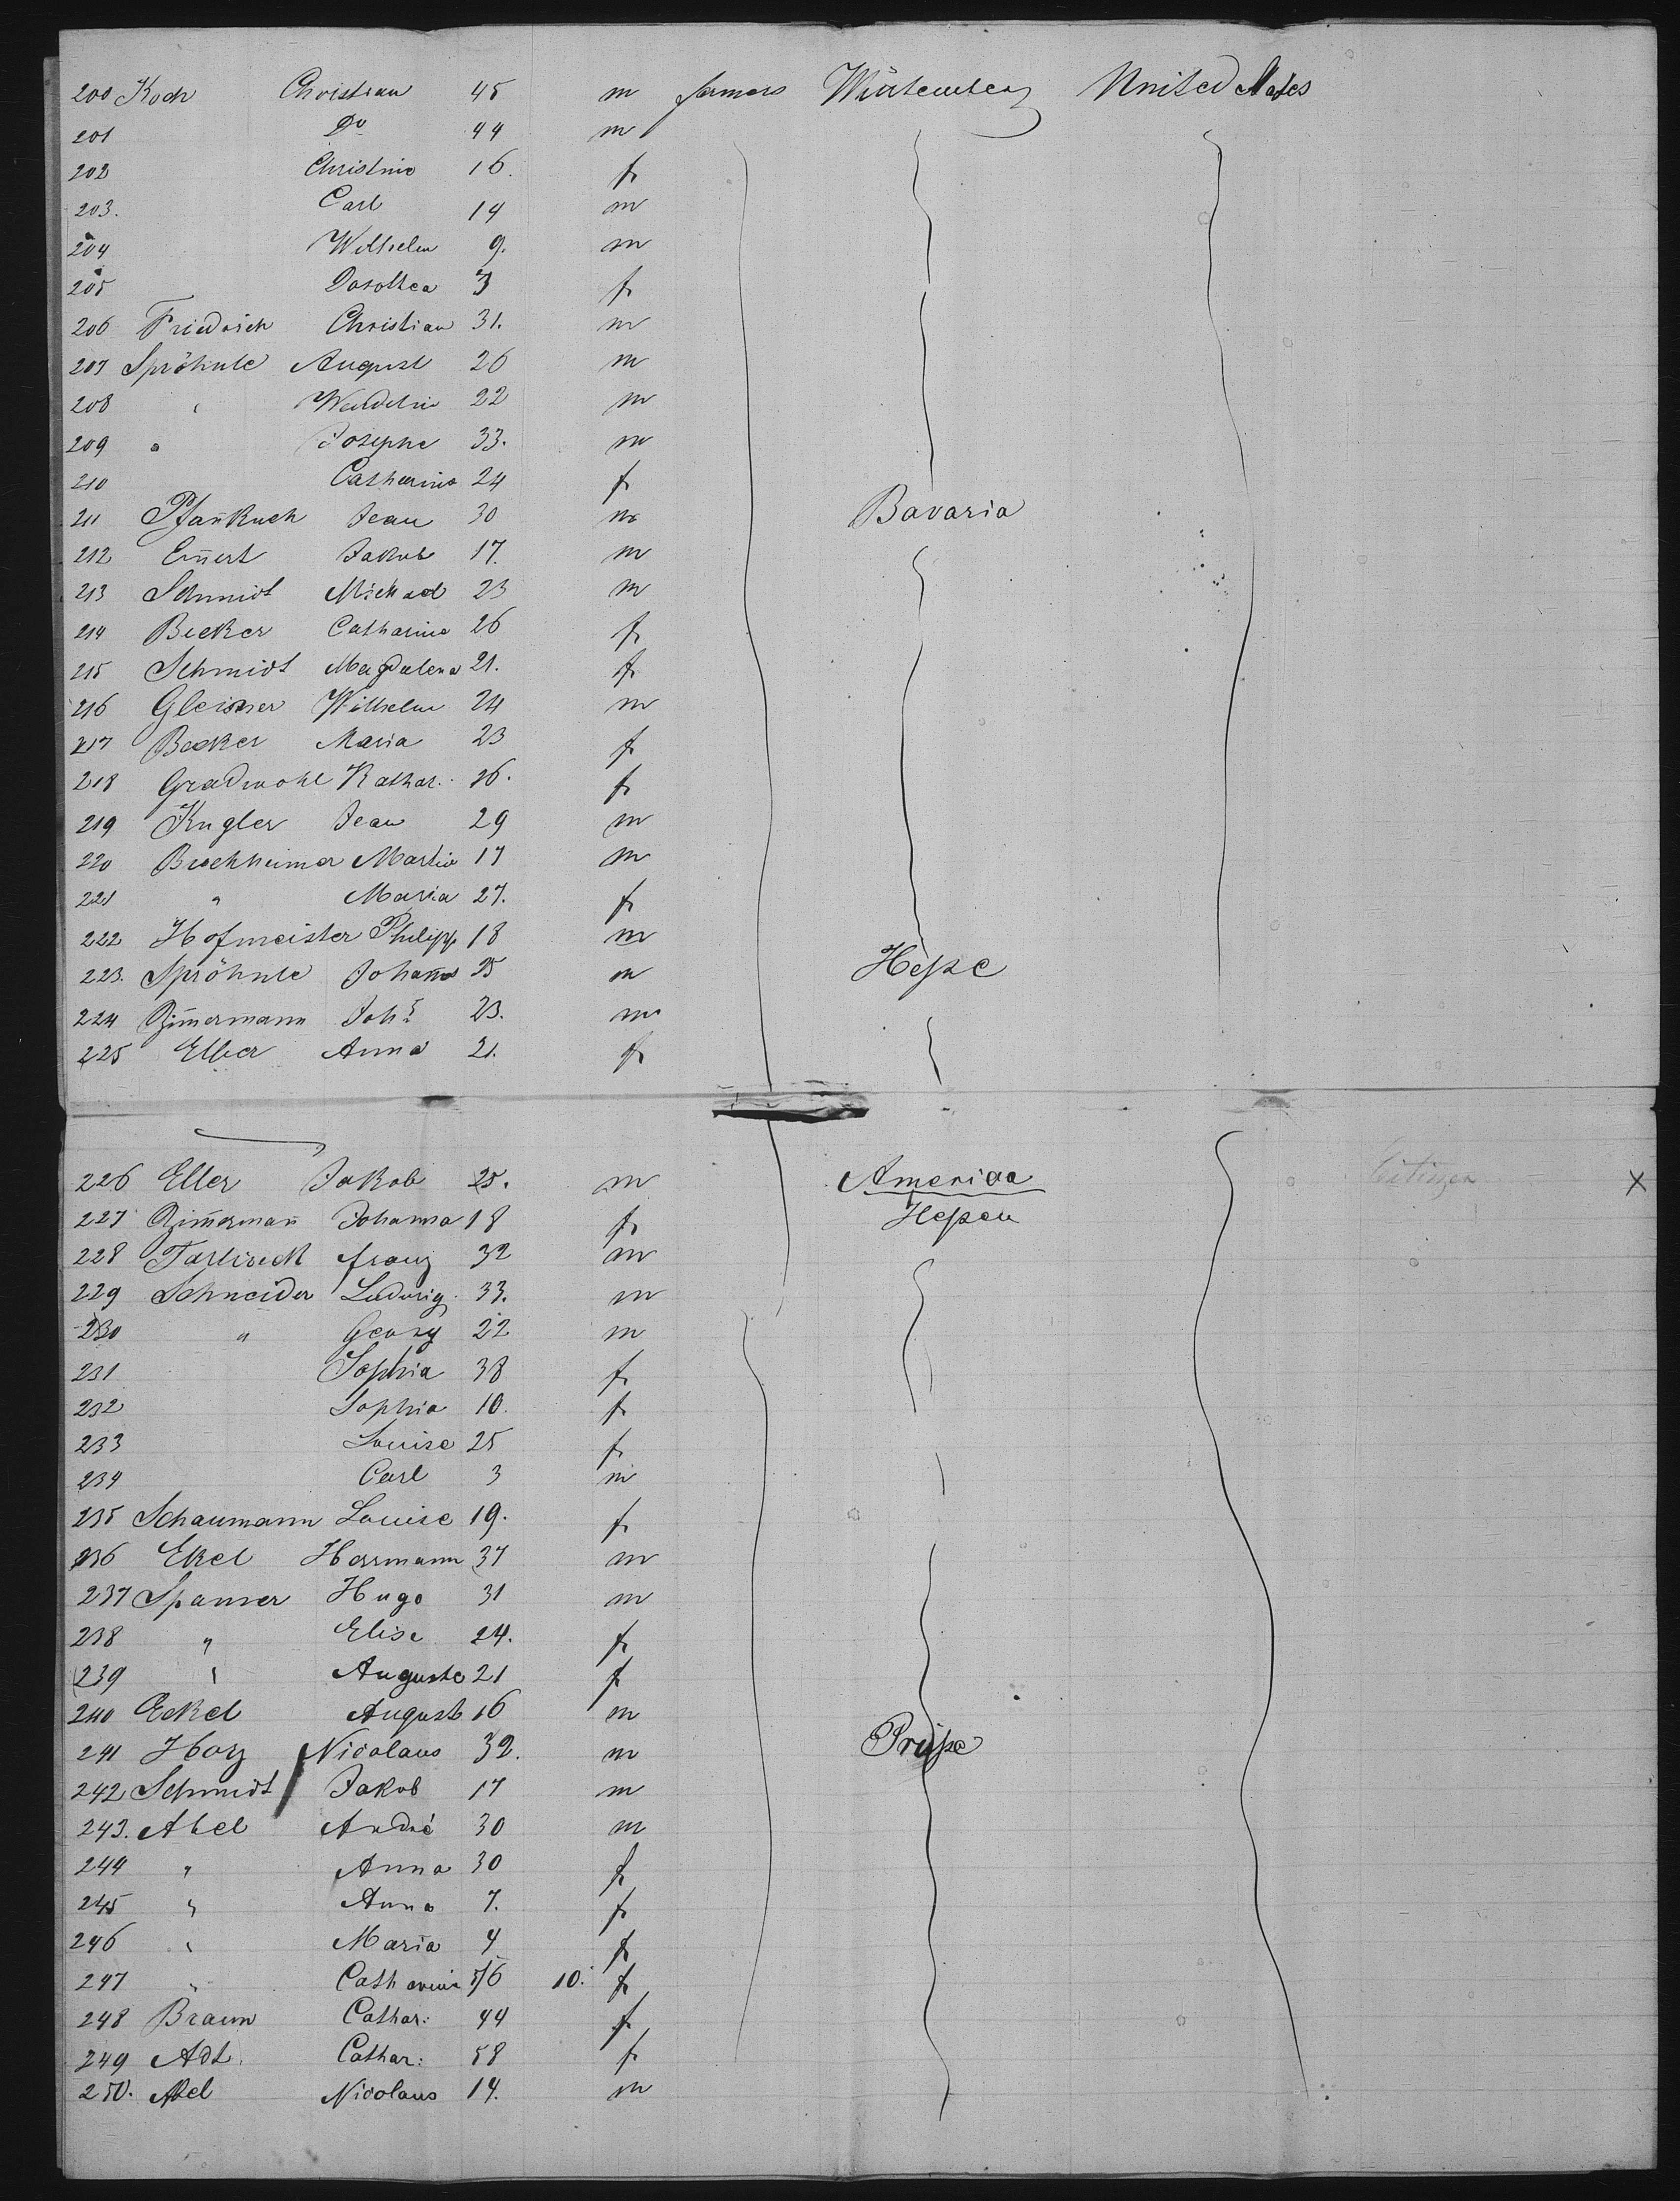 200 Koch Christian 45 m farmers Würtemberg United States
201 Do 44 m
202 Christine 16. f
203. Carl 14 m
204 Wilhelm 9. m
205 Dorothea 3 f
206 Friedrich Christian 31. m
207 Spröhnle August 26 m
208 " Wendelin 22 m
209 " Josephe 33. m
210 Catharina 24 f
211 Pfan̄kuch Jean 30 m Bavaria
212 Em̄ert Jakob 17. m
213 Schmidt Michael 23 m
214 Becker Catharina 26 f
215 Schmidt Magdalena 21. f
216 Gleisner Wilhelm 24 m
217 Becker Maria 23 f
218 Gradwohl Kathar. 26. f
219 Kugler Jean 29 m
220 Bischheimer Martin 17 m
221 " Maria 27. f
222 Hofmeister Philipp 18 m
223. Spröhnle Johannes 25 m Hesse
224 Zim̄ermann Johs 23. m
225 Elber Anna 21. f
226 Eller Jakob 25. m America Citizen X
227 Zim̄erman̄ Johanna 18 f Hessen
228 Franz 32 m
229 Schneider Ludwig 33. m
230 " Georg 22 m
231 Sophia 38 f
232 Sophia 10. f
233 Louise 25 f
234 Carl 3 m
235 Schaumann Louise 19. f
236 Ekel Herrmann 37 m
237 Spamer Hugo 31 m
238 " Elise 24. f
239 " Auguste 21 f
240 Eckel August 16 m
241 Horz Nicolaus 32. m Prusse
242 Schmidt Jakob 17 m
243. Abel André 30 m
244 " Anna 30 f
245 " Anna 7. f
246 " Maria 4 f
247 " Catharina 5/6 10. f
248 Braun Cathar: 44 f
249 Adt. Cathar: 58 f
250. Abel Nicolaus 14. m